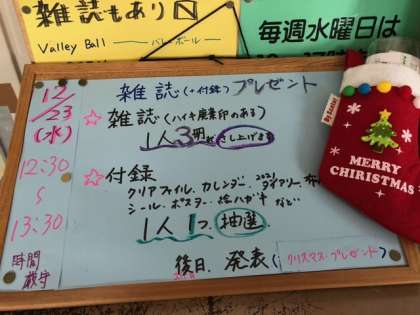 雑誌もあり
Valley Ball ― バレーボール ―
毎週水曜日は
12/23
(水)
12:30
〜
13:30
時間
厳守
雑誌(+付録)プレゼント
☆雑誌(ハイキ廃棄印のある)
1人3冊 さし上げます
☆付録
クリアファイル、カレンダー、2021 ダイアリー、布
シール、ポスター、絵ハガキなど
1人1つ、抽選、
後日、発表(クリスマス・プレゼント)
By Easter
MERRY
CHIRISTMAS